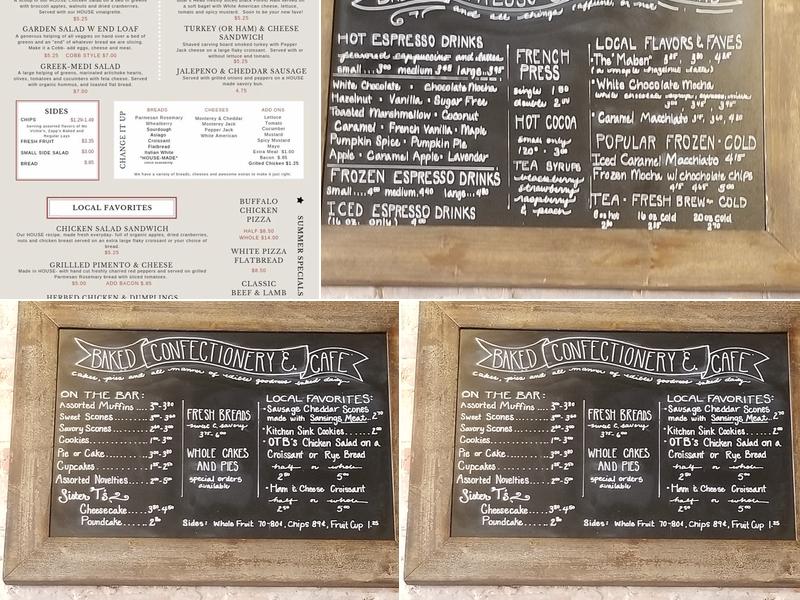 of apple walnuts and dried cranberries.
Served with our HOUSE vinaigrette.
$5.25
GARDEN SALAD W END LOAF
A generous helping of all veggies on hand over a bed of
greens and an "end" of whatever bread we are serving.
Make it a Cobb- add egg, cheese and meat.
$6.25 COBB STYLE $7.00
GREEK-MEDI SALAD
A large helping of greens, marinated artichoke hearts,
olives, tomatoes and cucumbers with feta cheese. Served
with organic hummus, and toasted flat bread.
$7.00
of a soft bagel with White American cheese, lettuce,
tomato and spicy mustard. Soon to be your new fave!
$5.25
TURKEY (OR HAM) & CHEESE
SANDWICH
Shaved carving board smoked turkey with Pepper
Jack cheese on a large flaky croissant. Served with or
without lettuce and tomato.
$5.25
JALEPENO & CHEDDAR SAUSAGE
Served with grilled onions and peppers on a house
made savory bun.
4.75
SIDES
CHIPS $1.29-1.49
Regular Lays
FRESH FRUIT $2.35
SMALL SIDE SALAD $3.00
BREAD $.85
CHANGE IT UP
BREADS
Parmesan Rosemary
Wheatberry
Sourdough
Asiago
Croissant
Flatbread
Italian White
"HOUSE-MADE"
CHEESES
Monterey & Cheddar
Monterey Jack
Pepper Jack
White American
ADD ONS
Lettuce
Tomato
Cucumber
Mustard
Spicy Mustard
Mayo
Extra Meal $1.00
Bacon $.85
Grilled Chicken $1.25
We have a variety of breads, cheeses and awesome extras to make it just right.
LOCAL FAVORITES
CHICKEN SALAD SANDWICH
Our HOUSE recipe, made fresh everyday- full of organic apples, dried cranberries,
nuts and chicken breast served on an extra large flaky croissant or your choice of
bread.
$5.25
GRILLLED PIMENTO & CHEESE
Made in HOUSE- with hand cut freshly charred red peppers and served on grilled
Parmesan Rosemary bread with sliced tomatoes.
$5.00 ADD BACON $.85
HERBED CHICKEN & DUMPLINGS
BUFFALO
CHICKEN
PIZZA
HALF $8.50
WHOLE $14.00
WHITE PIZZA
FLATBREAD
$8.50
CLASSIC
BEEF & LAMB
SUMMER SPECIALS
and all things caffeine, or not
HOT ESPRESSO DRINKS
steamed, cappuccino and lattes
small...3²⁵ medium 3⁷⁵ large..
White Chocolate · Chocolate Mocha
Hazelnut · Vanilla · Sugar Free
Toasted Marshmallow · Coconut
Caramel · French Vanilla · Maple
Pumpkin Spice · Pumpkin Pie
Apple · Caramel Apple · Lavendar
FROZEN ESPRESSO DRINKS
small.... medium. large...
ICED ESPRESSO DRINKS
(16 oz. only)
FRENCH
PRESS
single 1⁸⁰
double 2⁰⁰
HOT COCOA
small only
12oz · 3⁰⁰
TEA SYRUPS
blackberry
strawberry
raspberry
& peach
LOCAL FLAVORS & FAVES
·"The Maben"
(a maple hazelnut latte)
· White Chocolate Mocha
· Caramel Macchiato
POPULAR FROZEN · COLD
Iced Caramel Macchiato
Frozen Mocha w/ chocolate chips
TEA · FRESH BREW · COLD
8 oz hot 16 oz cold 20 oz cold
BAKED CONFECTIONERY & CAFE
cakes, pies and all manner of edible goodness baked daily
ON THE BAR:
Assorted Muffins
Sweet Scones
Savory Scones
Cookies
Pie or Cake
Cupcakes
Assorted Novelties
Sister T's
Cheesecake
Poundcake
FRESH BREADS
sweet & savory
WHOLE CAKES
AND PIES
special orders
available
LOCAL FAVORITES:
· Sausage Cheddar Scones
made with Sansing's Meat
· Kitchen Sink Cookies
· OTB's Chicken Salad on a
Croissant or Rye Bread
half or whole
2⁵⁰ 5⁰⁰
· Ham & Cheese Croissant
half or whole
2⁵⁰ 5⁰⁰
Sides: Whole Fruit 70-80¢, Chips 89¢, Fruit Cup 1.85
BAKED CONFECTIONERY & CAFE
cakes, pies and all manner of edible goodness baked daily
ON THE BAR:
Assorted Muffins
Sweet Scones
Savory Scones
Cookies
Pie or Cake
Cupcakes
Assorted Novelties
Sister T's
Cheesecake
Poundcake
FRESH BREADS
sweet & savory
WHOLE CAKES
AND PIES
special orders
available
LOCAL FAVORITES:
· Sausage Cheddar Scones
made with Sansing's Meat
· Kitchen Sink Cookies
· OTB's Chicken Salad on a
Croissant or Rye Bread
half or whole
2⁵⁰ 5⁰⁰
· Ham & Cheese Croissant
half or whole
2⁵⁰ 5⁰⁰
Sides: Whole Fruit 70-80¢, Chips 89¢, Fruit Cup 1.85